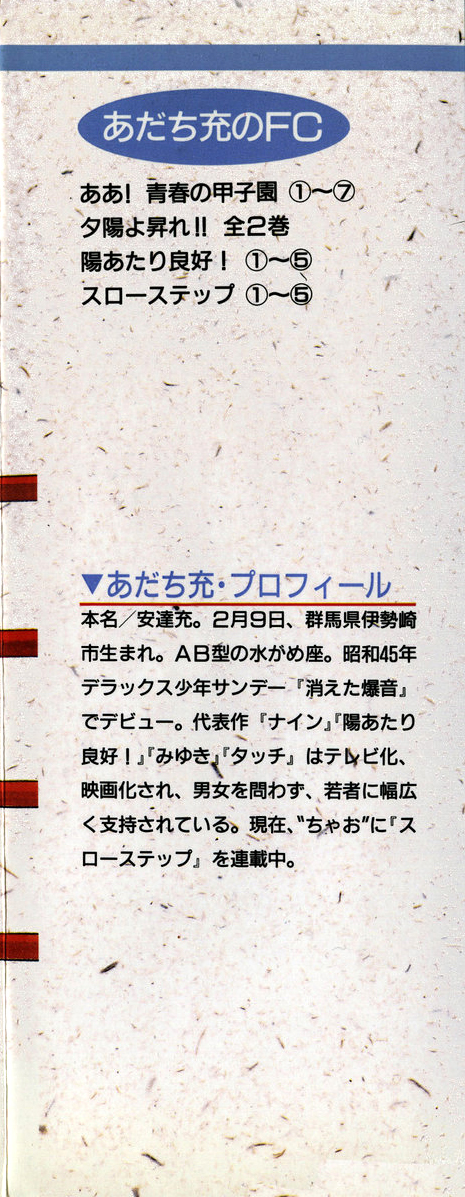 あだち充のFC
ああ! 青春の甲子園 ①〜⑦
夕陽よ昇れ!! 全2巻
陽あたり良好! ①〜⑤
スローステップ ①〜⑤
▼あだち充・プロフィール
本名／安達充。2月9日、群馬県伊勢崎
市生まれ。AB型の水がめ座。昭和45年
デラックス少年サンデー『消えた爆音』
でデビュー。代表作『ナイン』『陽あたり
良好!』『みゆき』『タッチ』はテレビ化、
映画化され、男女を問わず、若者に幅広
く支持されている。現在、“ちゃお”に『ス
ローステップ』を連載中。